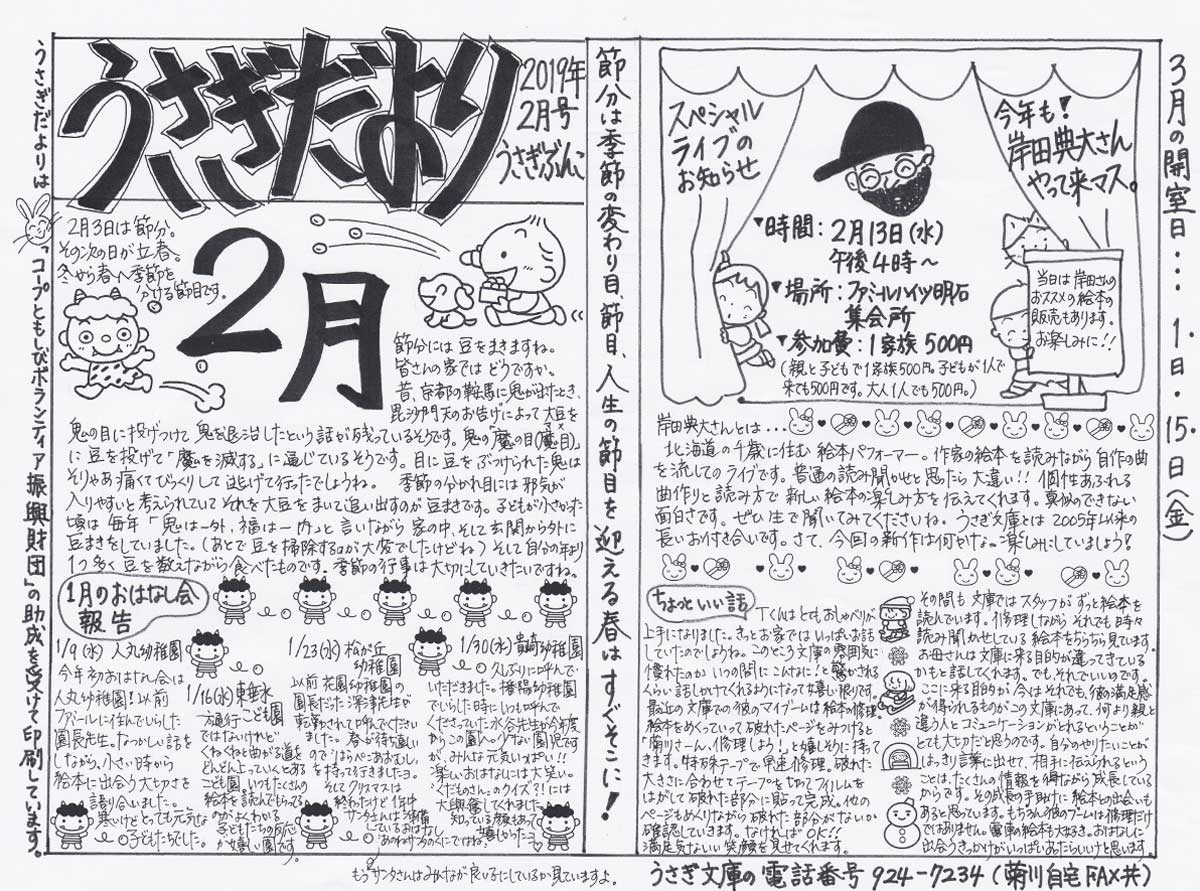 うさぎだよりは「コープともしびボランティア振興財団」の助成を受けて印刷しています。
うさぎだより
2019年
2月号
うさぎぶんこ
2月
2月3日は節分。
その次の日が立春。
冬から春へ季節を
分ける節目です。
節分には豆をまきますね。
皆さんの家ではどうですか。
昔、京都の鞍馬に鬼が出たとき、
毘沙門天のお告げによって大豆を
鬼の目に投げつけて鬼を退治したという話が残っているそうです。鬼の「魔の目(魔目)」
に豆を投げて「魔を滅する」に通じているそうです。目に豆をぶつけられた鬼は
そりゃあ痛くてびっくりして逃げて行ったでしょうね。 季節の分かれ目には邪気が
入りやすいと考えられていてそれを大豆をまいて追い出すのが豆まきです。子どもが小さかった
頃は毎年「鬼は一外、福は一内」と言いながら家の中、そして玄関から外に
豆まきをしていました。(あとで豆を掃除するのが大変でしたけどね)そして自分の年より
1つ多く豆を数えながら食べたものです。季節の行事は大切にしていきたいですね。
1月のおはなし会
報告
1/9(水)人丸幼稚園
今年初のおはなし会は
人丸幼稚園!以前
ファミールに住んでいらした
園長先生。なつかしい話を
しながら、小さい時から
絵本に出会う大切さを
語り合いました。
寒いけどとっても元気な
子どもたちでした。
1/16(水)東垂水
こども園
一方通行
ではないけれど
くねくねと曲がる道を
どんどん上っていくとある
こども園。いつもたくさんの
絵本を読んでもらってる
のがよくわかる
子どもたちの反応
が嬉しい園です。
1/23(水)松が丘
幼稚園
以前花園幼稚園の
園長だった深津先生が
転勤されて呼んでください
ました。春が待ち遠しい
ので「はらぺこあおむし」
を持って行きました。
そしてクリスマスは
終わったけど1年中
サンタさんは準備
しているおはなし
「あのね、サンタの国ではね」も。
もうサンタさんはみんなが良い子にしているか見ていますよ。
1/30(水)貴崎幼稚園
久しぶりに呼んで
いただきました。播陽幼稚園
でいらした時にいつも呼んで
くださっていた水谷先生が今年度
からこの園へ。少ない園児です
が、みんな元気いっぱい!!
楽しいおはなしには大笑い。
「だいこんさん」のクイズ?!には
大興奮してくれました。
知っている顔もあって
嬉しかったニコ
節分は季節の変わり目、節目、人生の節目を迎える春はすぐそこに!
スペシャル
ライブの
お知らせ
今年も!
岸田典大さん
やって来マス。
▼時間:2月13日(水)
午後4時〜
▼場所:ファミールハイツ明石
集会所
▼参加費:1家族500円
(親と子どもで1家族500円。子どもが1人で
来ても500円です。大人1人でも500円。)
当日は岸田さんの
おススメの絵本の
販売もあります。
お楽しみに!!
岸田典大さんとは...
北海道の千歳に住む絵本パフォーマー。作家の絵本を読みながら自作の曲
を流してのライブです。普通の読み聞かせと思ったら大違い!!個性あふれる
曲作りと読み方で新しい絵本の楽しみ方を伝えてくれます。真似のできない
面白さです。ぜひ生で聞いてみてくださいね。うさぎ文庫とは2005年以来の
長いお付き合いです。さて、今回の新作は何かな。ご楽しみにしていましょう!
ちょっといい話
Tくんはとてもおしゃべりが
上手になりました。きっとお家ではいっぱいお話
していたのでしょうね。このところ文庫の雰囲気に
慣れたのかいつの間にこんなに!と驚かされる
くらい話しかけてくれるようになって嬉しい限りです。
最近の文庫での彼のマイブームは絵本の修理。
絵本をめくっていって破れたページをみつけると
「菊川さーん、修理しよう!」と嬉しそうに持って
きます。特殊テープで早速修理。破れた
大きさに合わせてテープを切ってフィルムを
はがして破れた部分に貼って完成。他の
ページもめくりながら破れた部分がないか
確認していきます。なければOK!!
満足気ないい笑顔を見せてくれます。
その間も文庫ではスタッフがずっと絵本を
読んでいます。修理しながらそれでも時々
読み聞かせしている絵本をちらちら見ています。
お母さんは文庫に来る目的が違ってきている
かもと話してくれます。でも、それでいいのです。
ここに来る目的が今はそれでも、彼の満足感
が得られるものがこの文庫にあって、何より親と
違う人とコミュニケーションがとれるということが
とても大切だと思うのです。自分のやりたいことが
はっきり言葉に出せて、相手に伝えられるという
ことは、たくさんの情報を得ながら成長している
からです。その成長の手助けに絵本との出会いも
あると思っています。もちろん彼のブームは修理だけ
ではありません。電車の絵本も大好き。おはなしに
出会うきっかけがいっぱいあたらいいと思います。
うさぎ文庫の電話番号 924-7234 (菊川自宅FAX共)
3月の開室日... 1日・15日(金)